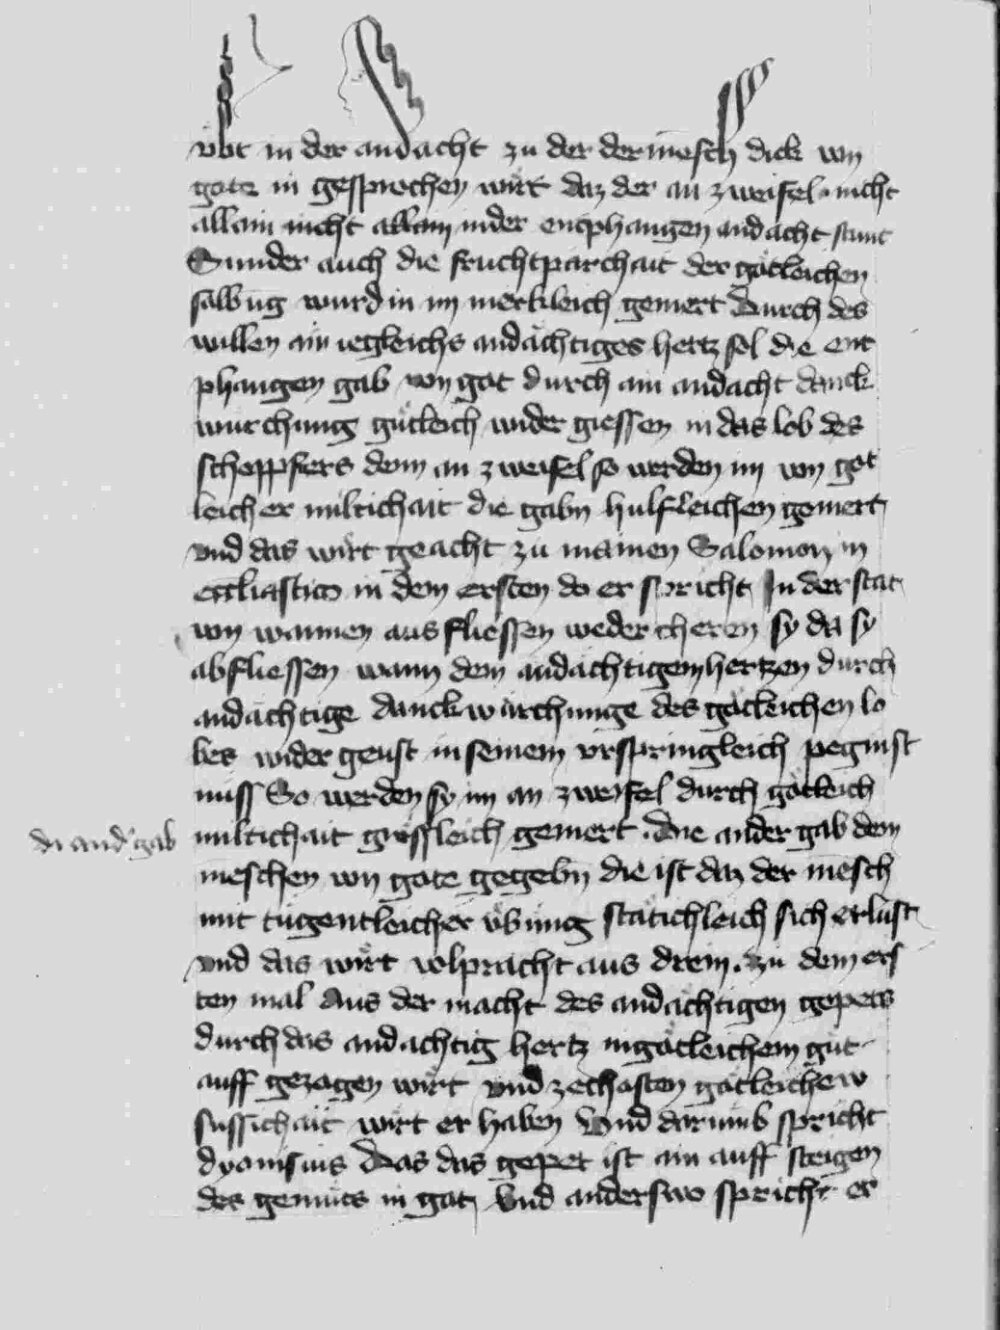 übt in der andacht zu der der mesch dick von
gote in gesprochen wirt daz der an zweifel nicht
allain nicht allain in der enphangen andacht stunt
Sunder auch die fruchtparchait der götleichen
salbug wurd in im merkleich gemert Durch des
willen ain iegleichs andächtiges hertz sol die ent
phangen gab von got durch ain andacht danck
würchung gütleich wider giessen in das lob des
scheppfers denn an zweifel so werden im von göt
leicher miltichait die gabn hulfleichen gemert
vnd das wirt geacht zu mainen Salomon in
eccliastico in dem ersten do er spricht In der stat
von wannen aus fliessen weder cheren sy da sy
abfliessen wann dem andächtigem hertzen durch
andächtige danckwürchunge des götleichen lo
bes wider geust in seinem vrspringleich pegnist
nuss So werden sy im an zweifel durch götleich
miltichait grössleich gemert Die ander gab dem
di and' gab
meschen von gote gegebn die ist daz der mesch
mit tugentleicher übung stätichleich sich erlust
vnd das wirt volpracht aus drein zu dem ers
ten mal Aus der macht des andächtigen gepets
durch das andächtig hertz in götleichem güt
auff gezogen wirt vnd ze chosten götleichew
süssichait wirt er haben Vnd darumb spricht
dyonisius Das das gepet ist ain auff steigen
des gemüts in got Vnd anderswo spricht er